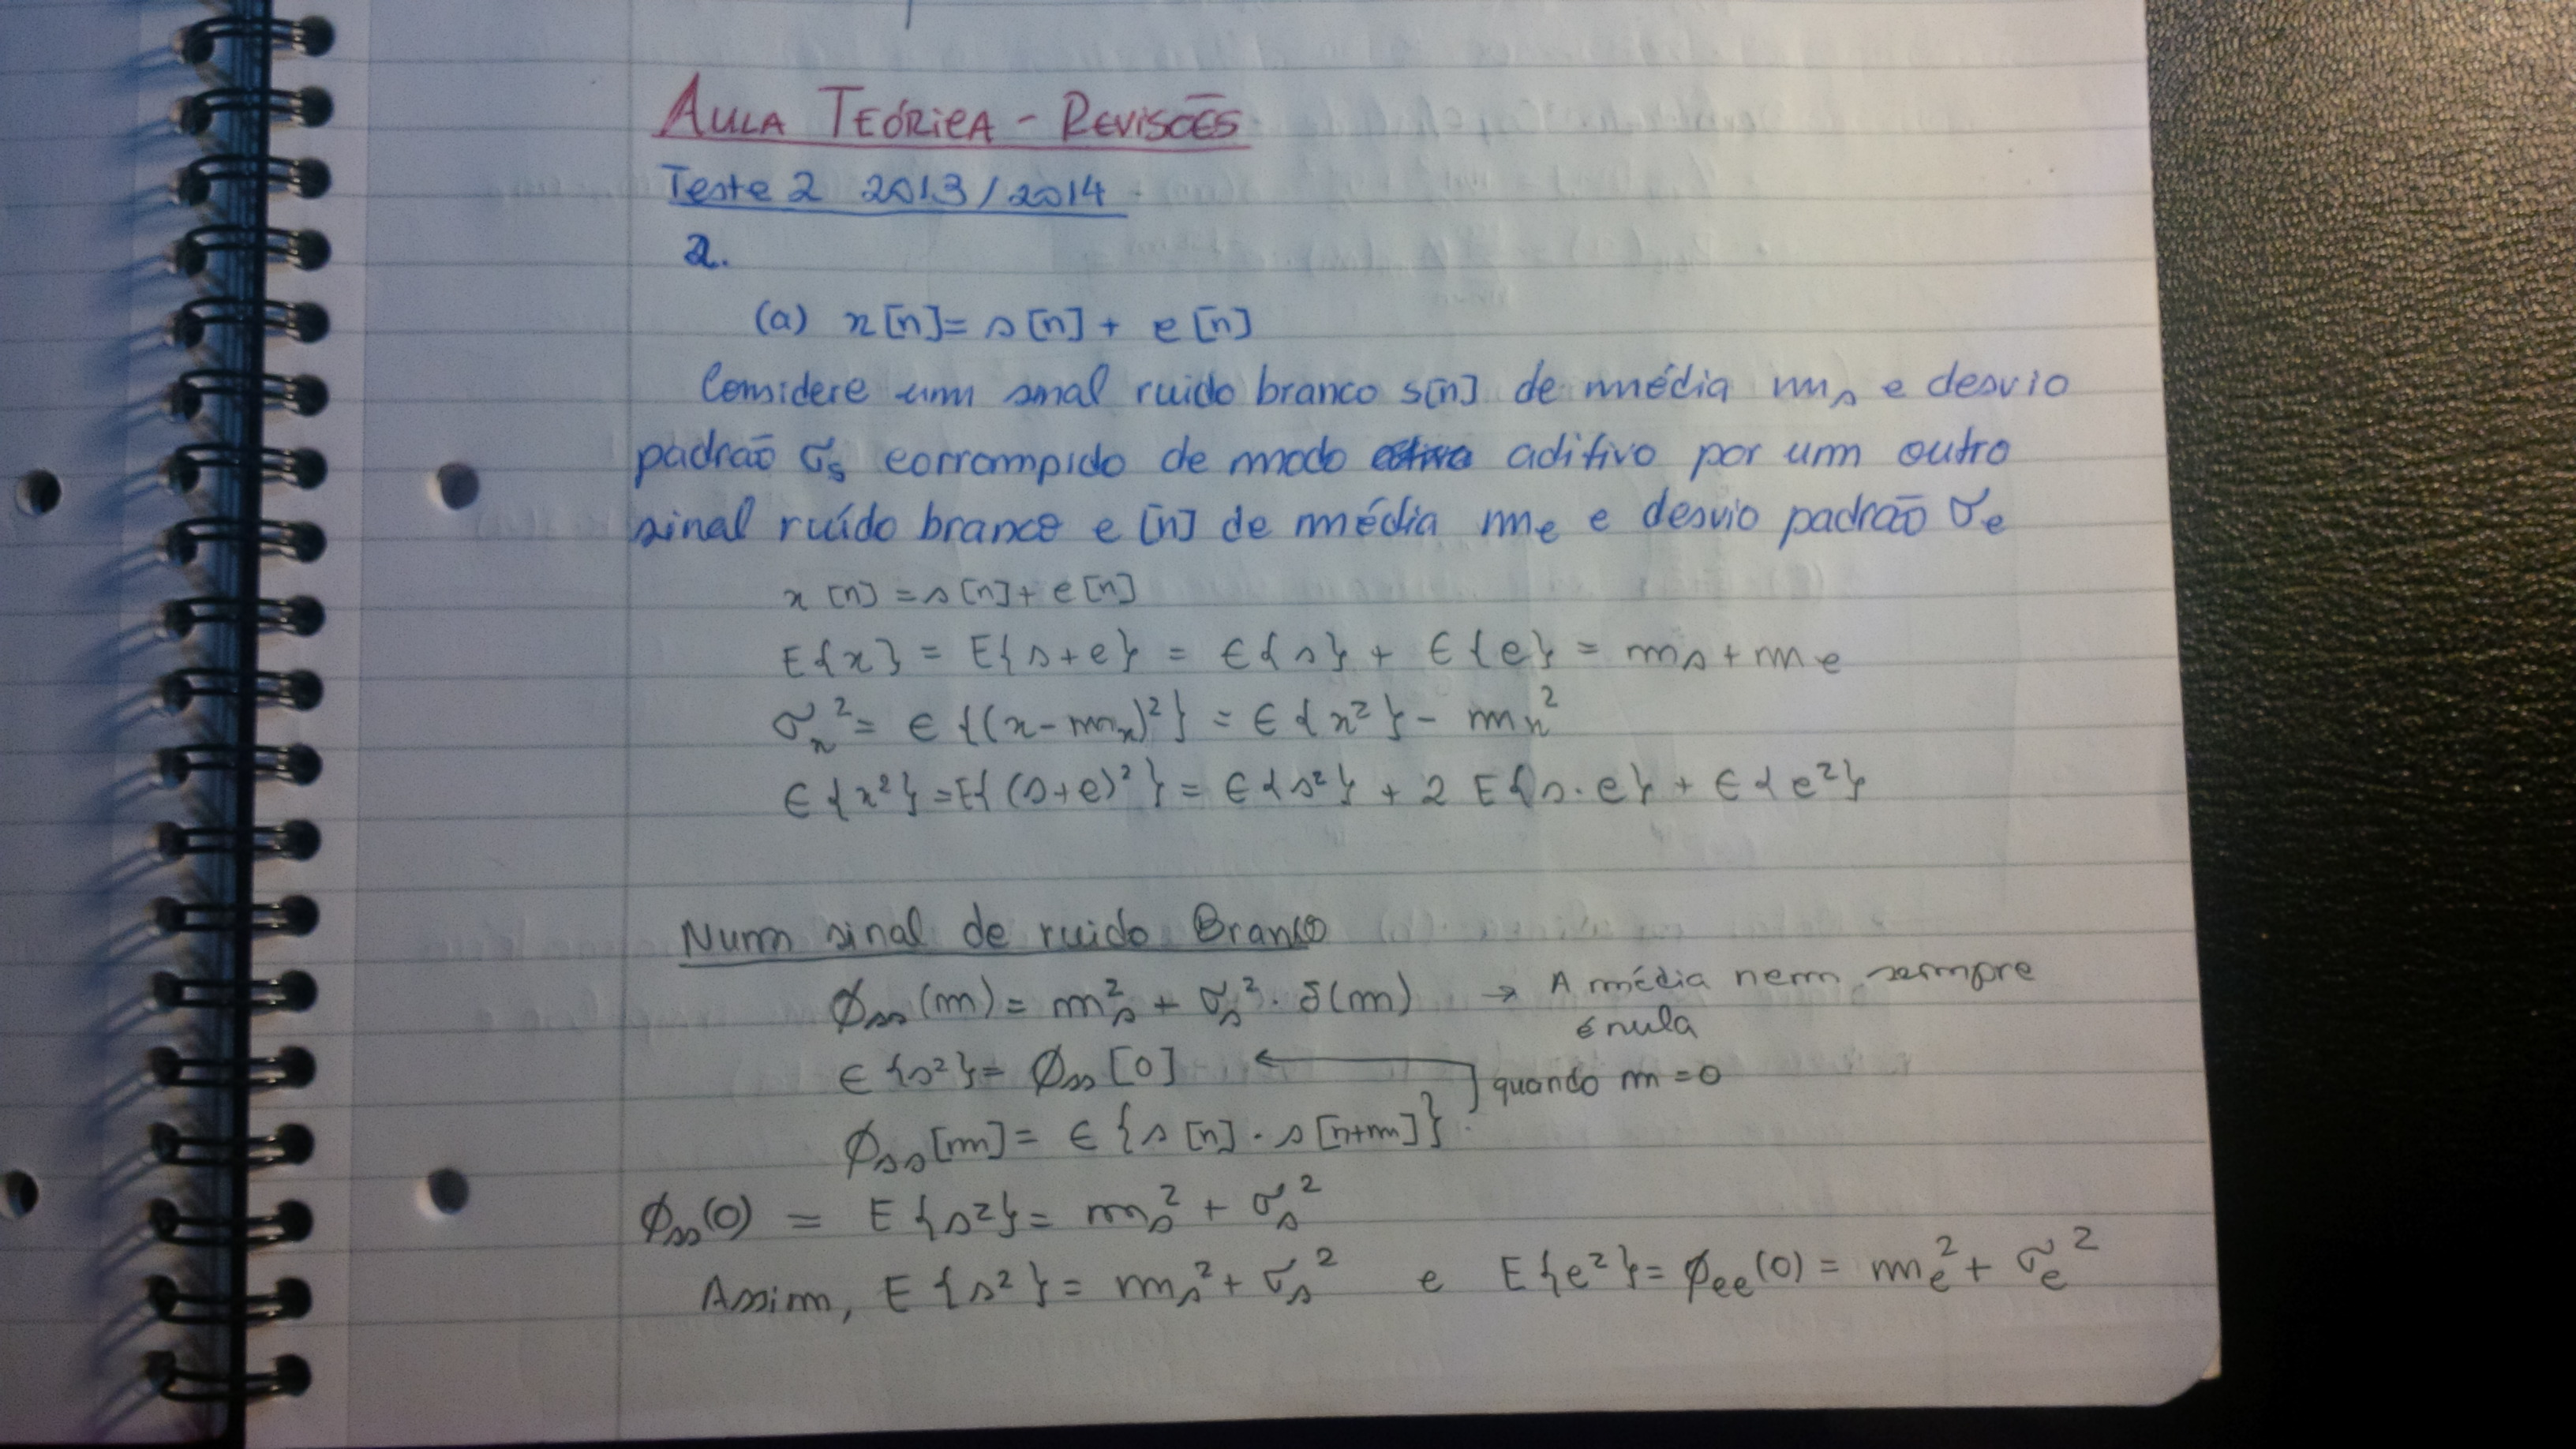 AULA TEÓRICA - REVISÕES
Teste 2 2013/2014
2.
(a) x[n]= s[n] + e[n]
Considere um sinal ruido branco s[n] de média ms e desvio
padrão σs corrompido de modo aditivo por um outro
sinal ruído branco e[n] de média me e desvio padrão σe
x[n] = s[n] + e[n]
E{x} = E{s+e} = E{s} + E{e} = ms + me
σx² = E{(x-mx)²} = E{x²} - mx²
E{x²} = E{(s+e)²} = E{s²} + 2 E{s.e} + E{e²}
Num sinal de ruido Branco
Øss(m) = ms² + σs² . δ(m) → A média nem sempre
é nula
E{s²} = Øss[0] ← quando m = 0
Øss[m] = E{s[n] . s[n+m]}
Øss(0) = E{s²} = ms² + σs²
Assim, E{s²} = ms² + σs² e E{e²} = Øee(0) = me² + σe²